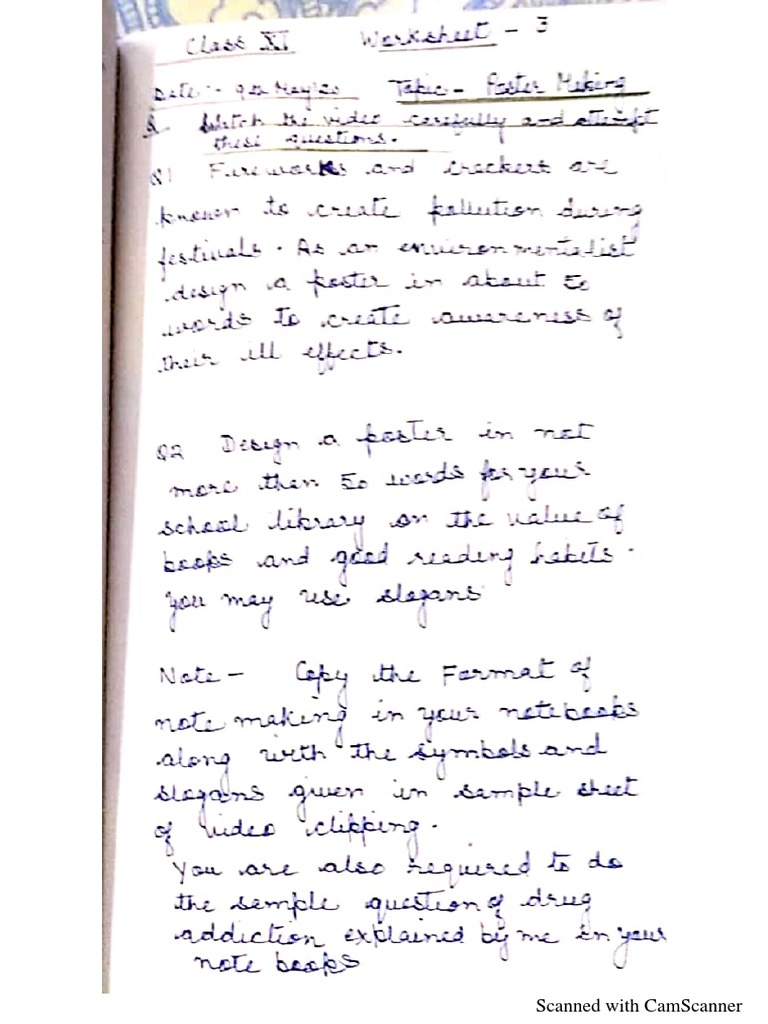 Class XI Worksheet - 3
Date :- 9th May'20 Topic - Poster Making
Q. Watch the video carefully and attempt
these questions.
Q1 Fireworks and crackers are
known to create pollution during
festivals. As an environmentalist
design a poster in about 50
words to create awareness of
their ill effects.
Q2 Design a poster in not
more than 50 words for your
school library on the value of
books and good reading habits.
You may use slogans
Note - Copy the Format of
note making in your notebooks
along with the symbols and
slogans given in sample sheet
of video clipping.
You are also required to do
the sample question of drug
addiction explained by me in your
note books
Scanned with CamScanner